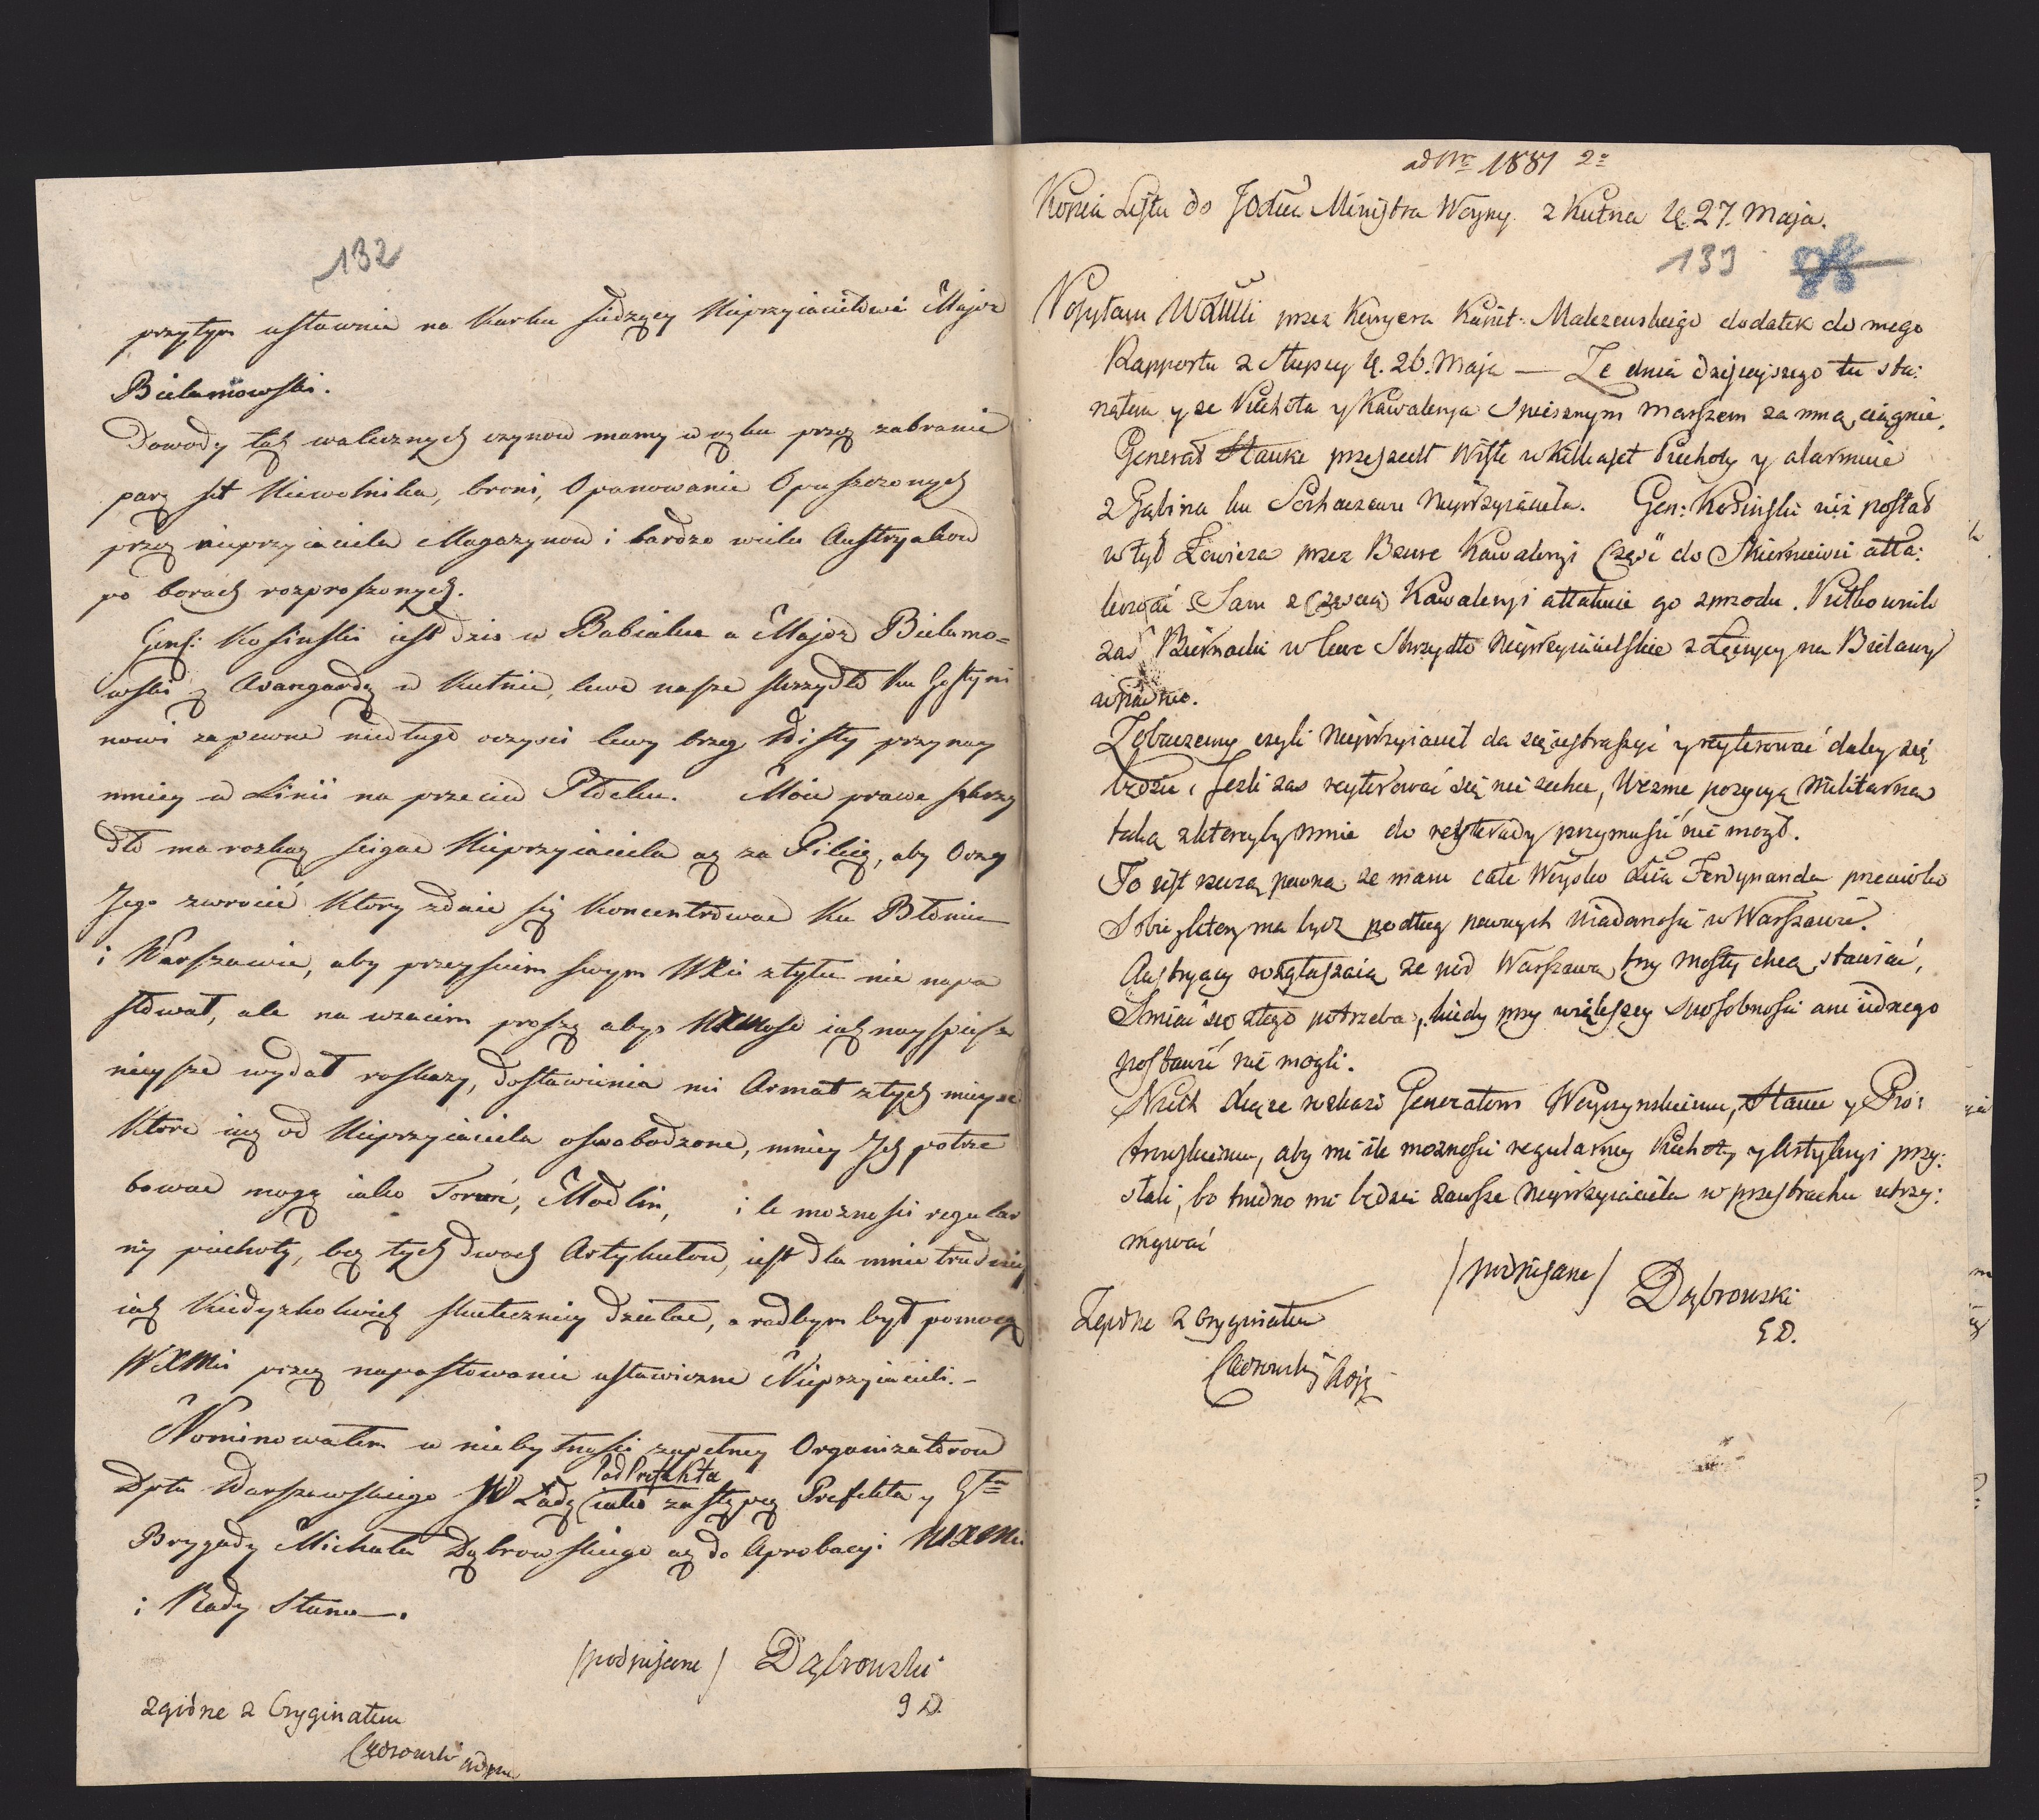 132
przytym ustawnie na karku siedzący Nieprzyiacielowi Major
Bielamowski.
Dowody tak walecznych czynow mamy w ręku przez zabranie
parę set Niewolnika, broni, Opanowanie Opuszczonych
przez nieprzyiaciela Magazynow i bardzo wielu Austryakow
po borach rozproszonych.
Genl: Kosinski iest dzis w Babiaku a Major Bielamo=
wski z Avangardą w Kutnie, lewe nasze skrzydło ku Gostyni
nowi zapewne niedługo oczysci lewy brzeg Wisły przynay
mniey w Linii na przeciw Płocku. Moie prawe skrzy
dło ma rozkaz scigac Nieprzyiaciela aż za Pilicę, aby Oczy
Jego zwrocić ktory zdaie się koncentrowac ku Błoniu
i Warszawie, aby przeysciem swym WXci ztyłu nie napa
stował, ale na wzaiem proszę abys WXMość iak nayspiesz
nieysze wydał roskazy, dostawienia mi Armat z tych mieysc
ktore iuż od Nieprzyiaciela oswobodzone, mniey Jch potrze
bowac mogą iako Toruń, Modlin, ile moznosci regular
ny piechoty, bez tych dwoch Artykułow, iest dla mnie trudniey
iak kiedyzkolwiek skuteczniey działac, a radbym był pomocą
WXMci przez napastowanie ustawiczne Nieprzyiacieli.-
Nominowałem w niebytnosci zupełney Organizatorow
PodPrefekta
Dptu Warszawskiego JW Ładę (iako zastępcę Prefekta y Gła
Brygady Michała Dąbrowskiego aż do Aprobacyi WXMci
i Rady Stanu.
/podpisane/ Dąbrowski
GD.
zgodne z Oryginałem
ad Nro 1881 2o
Kopia Listu do JO Xcia Ministra Woyny z Kutna d. 27. Maja.
133
Posyłam WXMci przez Kuryera Kapit: Malczewskiego dodatek do mego
Rapportu z Słupcy d. 26. Maja — Ze dnia dzisieyszego tu sta:
nąłem y ze Piechota y Kawalerya spiesznym marszem za mną ciągnie,
Generał Hauke przeszedł Wisłę w kilkaset Piechoty y alarmuie
z Gąbina ku Sochaczewu Nieprzyiaciela. Gen: Kosinski iuż posłał
w tył Łowicza przez Bzurę Kawaleryi Część do Skierniewic atta:
kować. Sam z częscią Kawaleryi attakuie go zprzodu. Pułkownik
zas Biernacki w lewe Skrzydło Nieprzyiacielskie z Łęczycy na Bielawy
wpadnie.
Zobaczemy czyli Nieprzyiaciel da się ustraszyć y reyterować daley się
będzie, Jezli zas reyterować się nie zechce, Wezme pozycyą Militarną
taką z ktoreyby mnie do reyterady przymusić nie mogł.
To iest rzeczą pewną ze mam całe Woysko Xcia Ferdynanda przeciwko
Sobie, ktory ma bydz podług pewnych Wiadomosci w Warszawie.
Austryacy rozgłaszaią ze pod Warszawą trzy Mosty chcą stawiać,
Smiać się z tego potrzeba, kiedy przy większey sposobnosci ani iednego
postawić nie mogli.
Niech Xiąże rozkaze Generałom Woyczynskiemu, Hauke y Pio:
trowskiemu, aby mi ile moznosci regularney Piechoty y Artyleryi przy:
słali, bo trudno mi będzie zawsze Nieprzyiaciela w przestrachu utrzy:
mywać
/podpisane/ Dąbrowski
GD.
Zgodne z Oryginałem